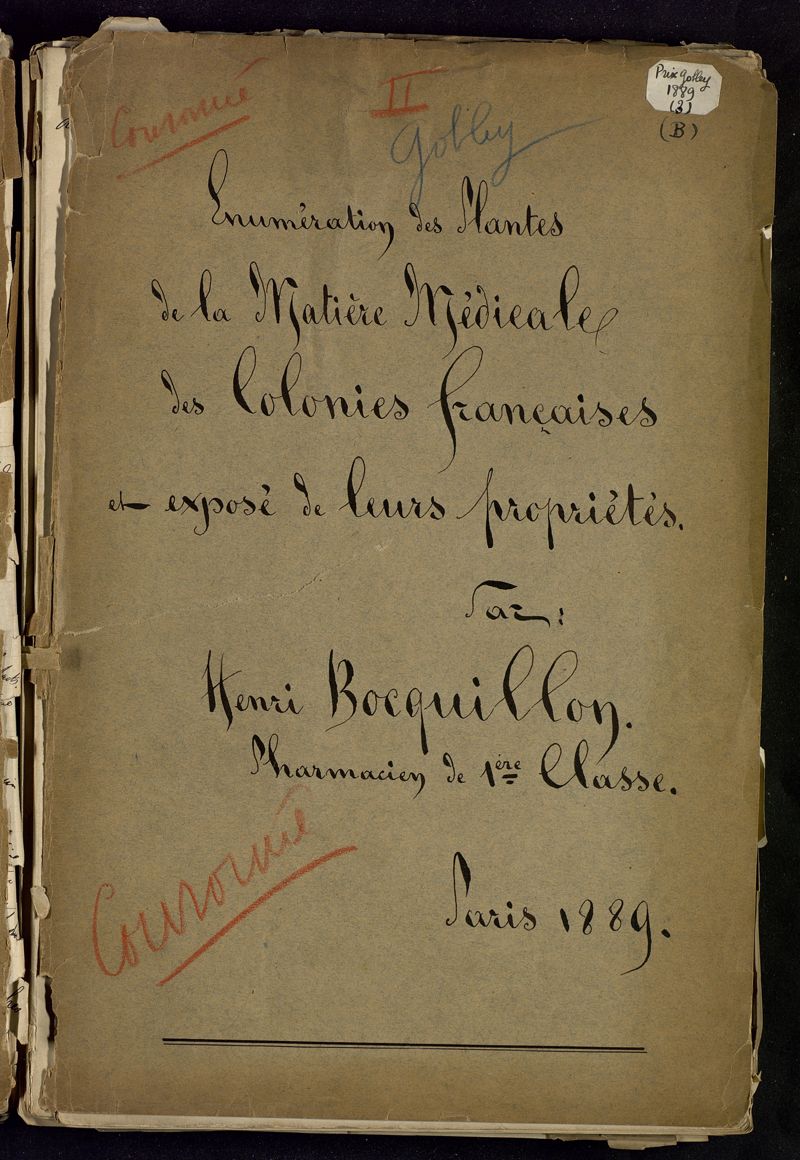 Couronné
II
Gobley
Prix Gobley
1889
(3)
(B)
Enumération des Plantes
de la Matière Médicale
des Colonies françaises
et exposé de leurs propriétés.
Par :
Henri Bocquillon.
Pharmacien de 1ère Classe.
Couronné
Paris 1889.